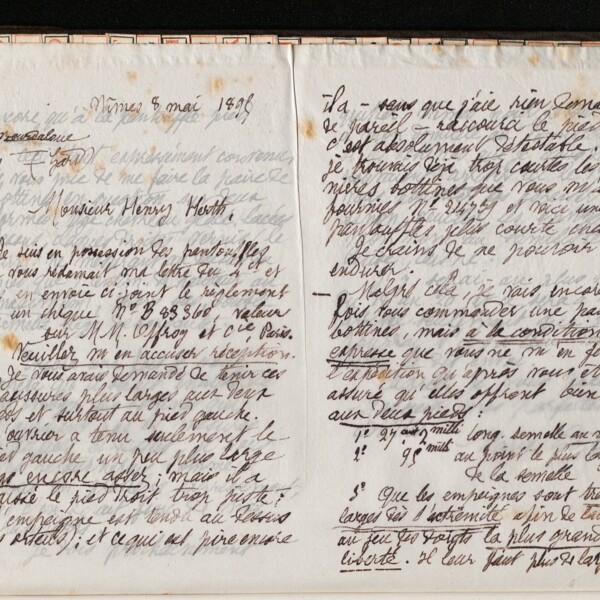 Nîmes 8 mai 189
Monsieur Henry Herth.
Je suis en possession des pantoufles
vous réclamait ma lettre du 4 ct et
en envoie ci-joint le règlement
un chèque No B 83360, valeur
sur M.M. Offroy et Cie, Paris.
Veuillez m'en accuser réception.
Je vous avais demandé de tenir ces
aussures plus larges aux deux
ds et surtout au pied gauche.
ouvrier a tenu seulement le
ed gauche un peu plus large
pas encore assez; mais il a
le pied droit trop juste;
empeigne est tendu au dessus
orteils); et ce qui est pire encore
il a - sans que j'aie rien dema
de pareil - raccourci le pied
c'est absolument détestable.
je trouvais déjà trop courtes les
nières bottines que vous m'
fournies No 2479 et voici une
pantoufles plus courte enco
Je crains de ne pouvoir
endurer.
- Malgré cela, je vais encore
fois vous commander une pai
bottines, mais à la condition
expresse que vous ne m'en fe
l'expédition qu'après vous êt
assuré qu'elles offrent bien
aux deux pieds:
1° 27 2 millis long. semelle au m
2° 95 millis au point le plus la
de la semelle
3° Que les empeignes sont trè
larges dès l'extrémité afin de lai
au jeu des doigts la plus grand
liberté. Il leur faut plus de larg